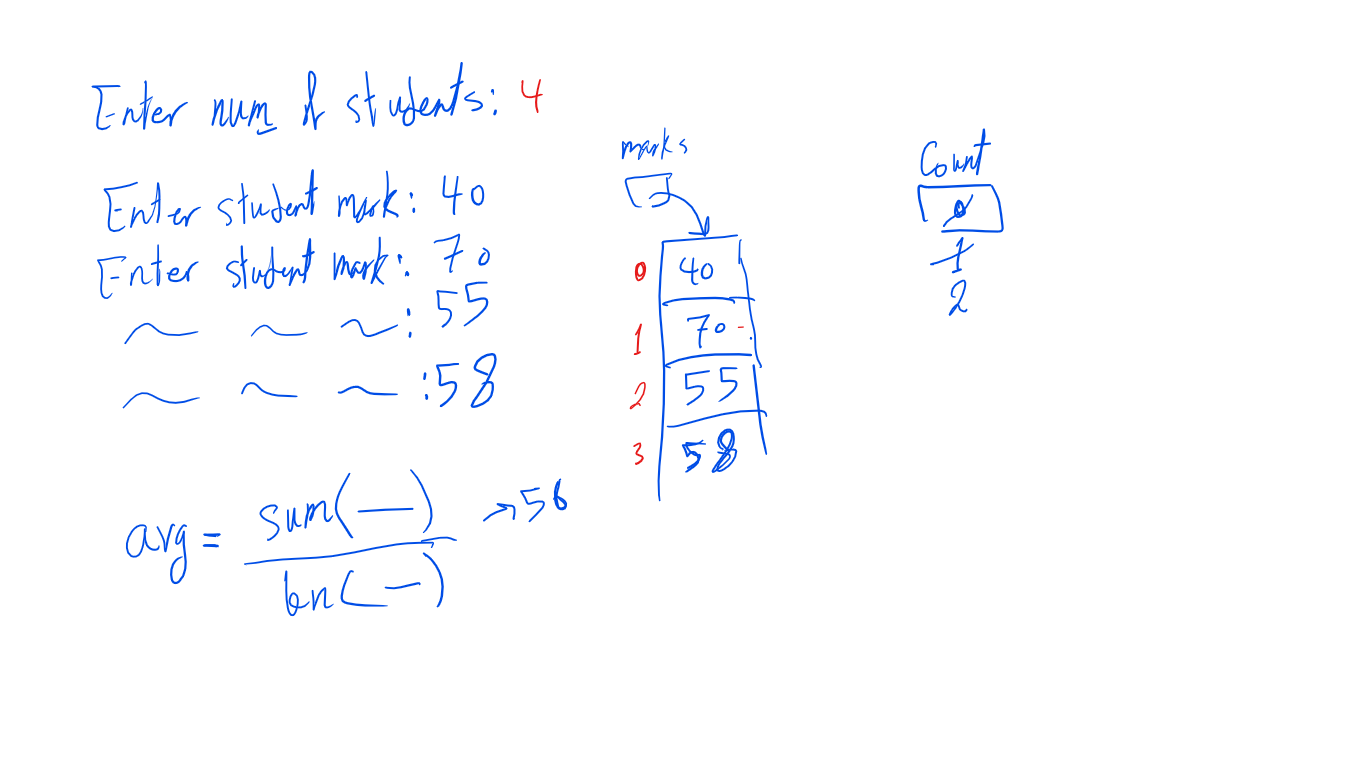 Enter num of students: 4
Enter student mark: 40
Enter student mark: 70
: 55
: 58
avg = sum(—) → 56
len(—)
marks
0 40
1 70
2 55
3 58
Count
0
1
2